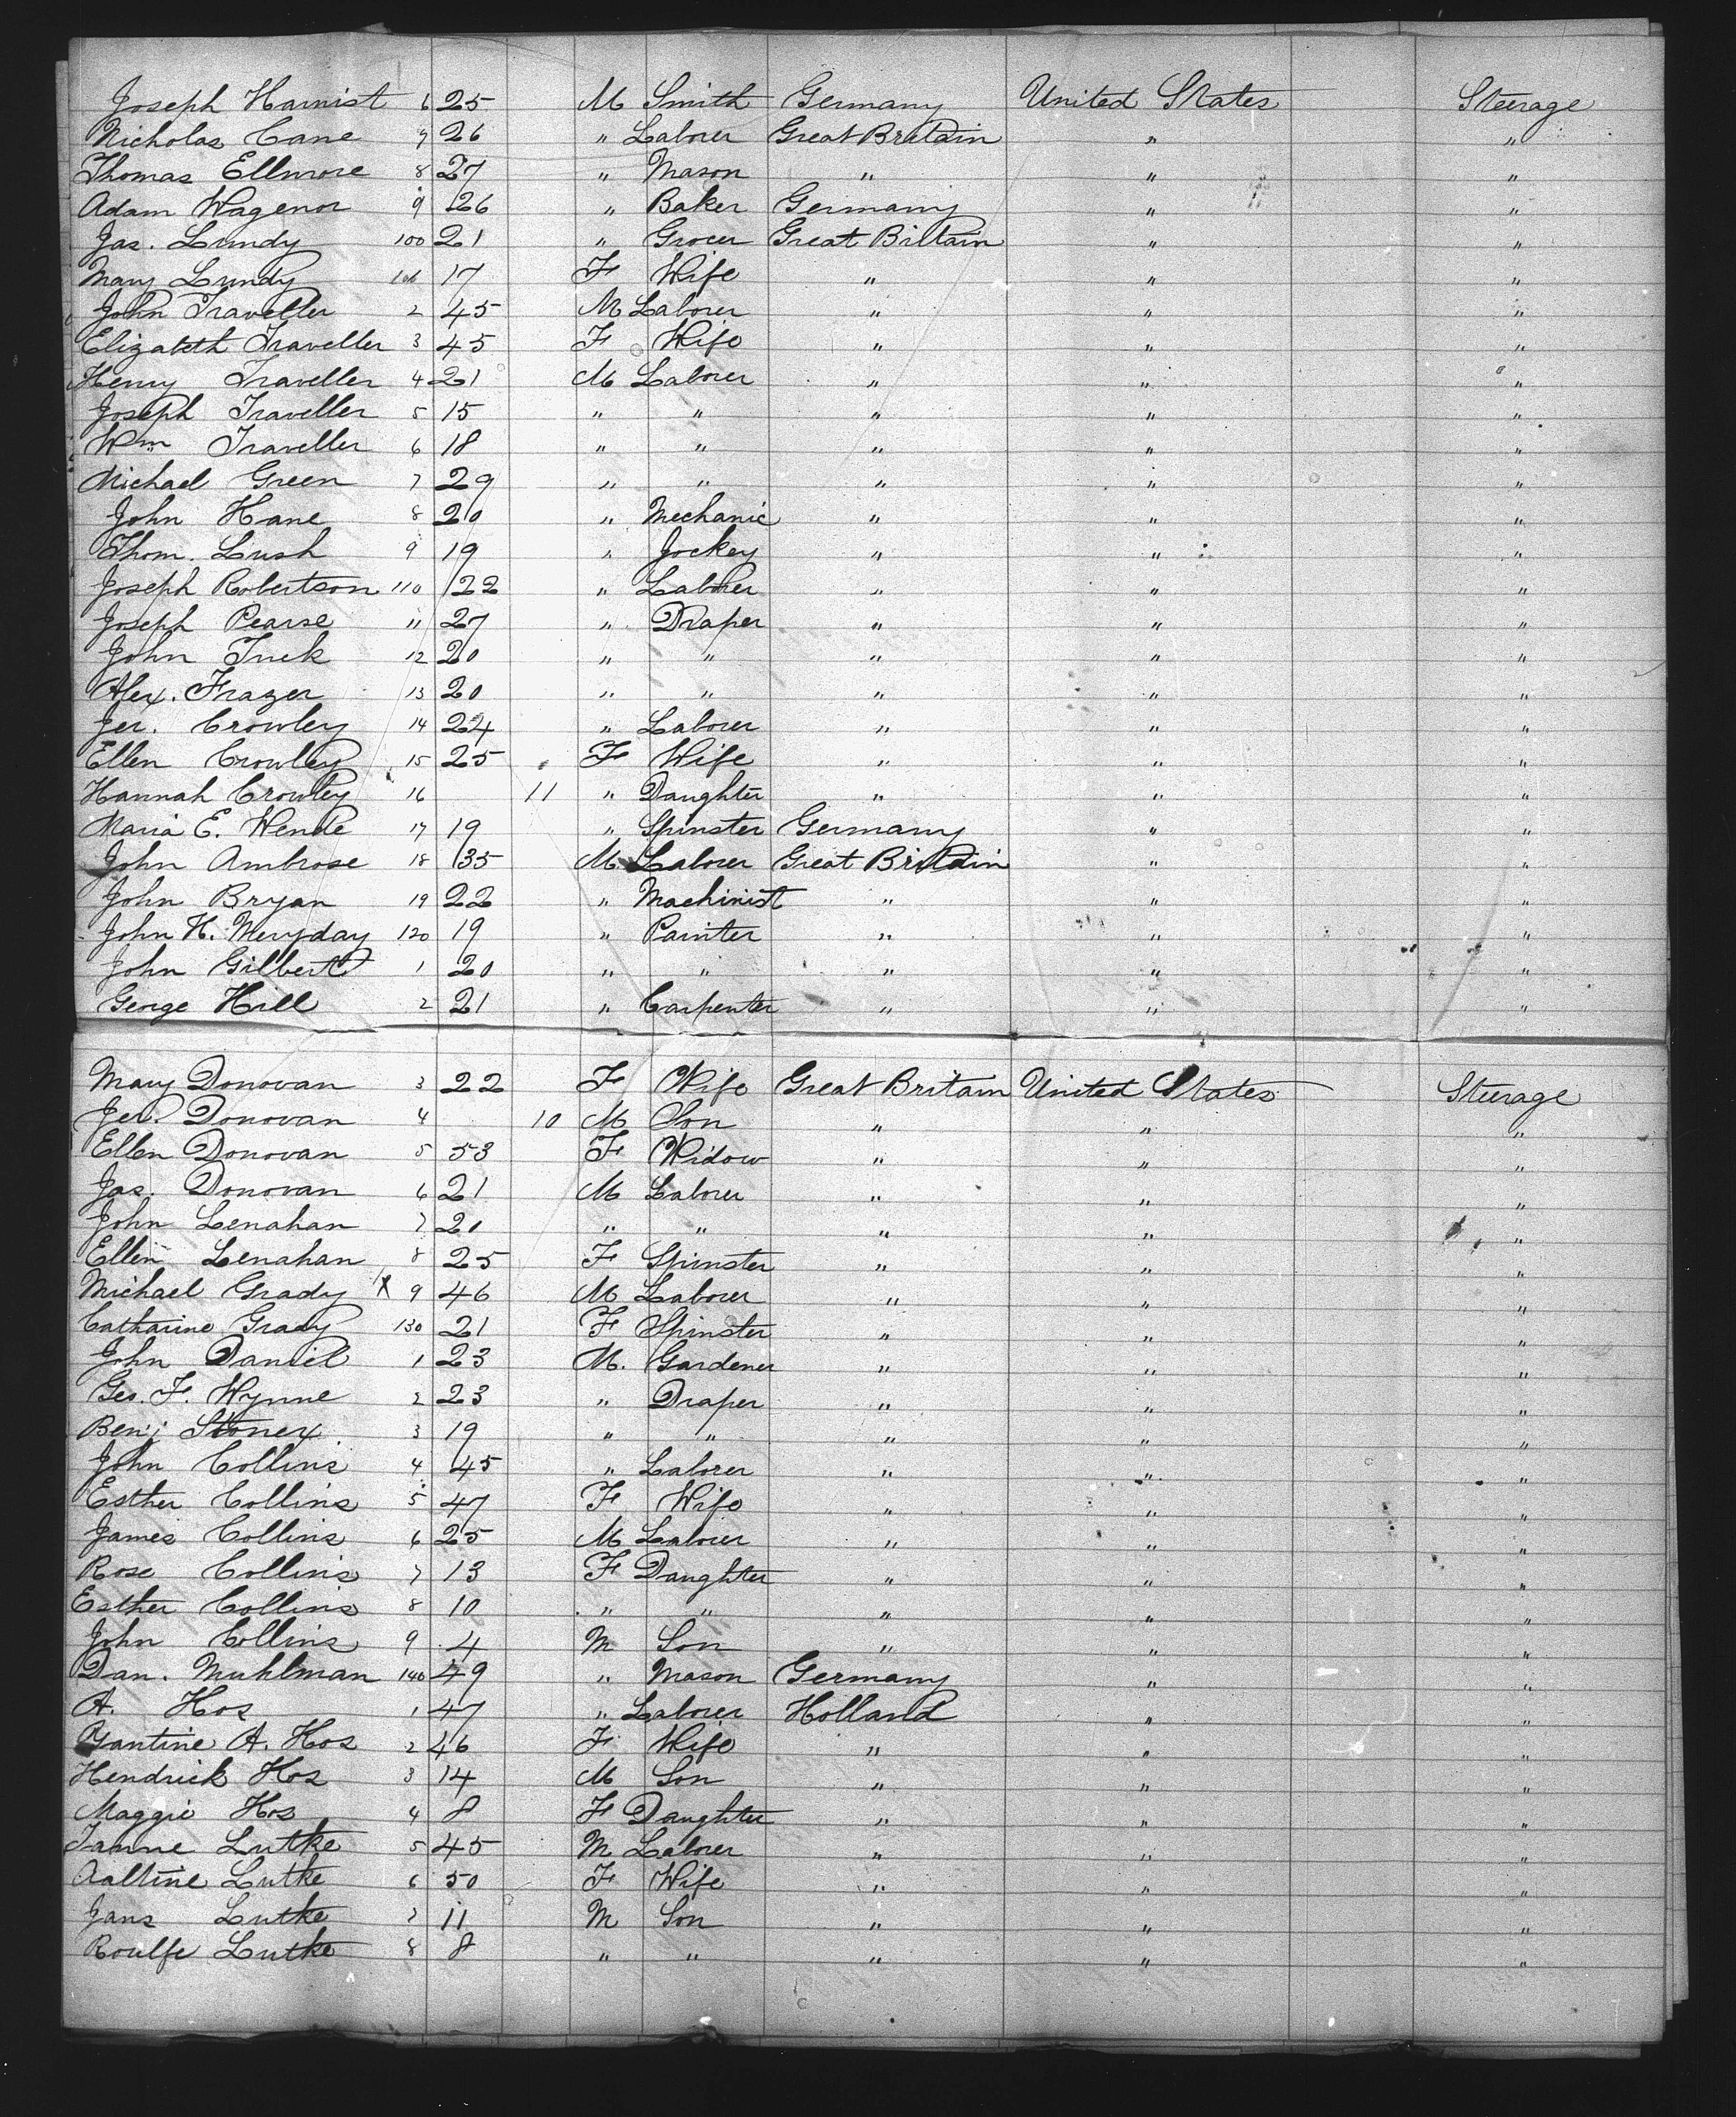 Joseph Harnist 6 25 M Smith Germany United States Steerage
Nicholas Cane 7 26 " Laborer Great Britain " "
Thomas Ellmore 8 27 " Mason " " "
Adam Wagenor 9 26 " Baker Germany " "
Jas. Lundy 100 21 " Grocer Great Britain " "
Mary Lundy 101 17 F Wife " " "
John Traveller 2 45 M Laborer " " "
Elizabeth Traveller 3 45 F Wife " " "
Henry Traveller 4 21 M Laborer " " "
Joseph Traveller 5 15 " " " " "
Wm Traveller 6 18 " " " " "
Michael Green 7 29 " " " " "
John Hane 8 20 " Mechanic " " "
Thom. Lush 9 19 " Jockey " " "
Joseph Robertson 110 22 " Laborer " " "
Joseph Pearse 11 27 " Draper " " "
John Tuck 12 20 " " " " "
Alex. Frazer 13 20 " " " " "
Jer. Crowley 14 24 " Laborer " " "
Ellen Crowley 15 25 F Wife " " "
Hannah Crowley 16 11 " Daughter " " "
Maria E. Wende 17 19 " Spinster Germany " "
John Ambrose 18 35 M Laborer Great Britain " "
John Bryan 19 22 " Machinist " " "
John H. Meryday 120 19 " Painter " " "
John Gilbert 1 20 " " " " "
George Hill 2 21 " Carpenter " " "
Mary Donovan 3 22 F Wife Great Britain United States Steerage
Jer. Donovan 4 10 M Son " " "
Ellen Donovan 5 53 F Widow " " "
Jas. Donovan 6 21 M Laborer " " "
John Lenahan 7 20 " " " " "
Ellen Lenahan 8 25 F Spinster " " "
Michael Grady X 9 46 M Laborer " " "
Catharine Grady 130 21 F Spinster " " "
John Daniel 1 23 M. Gardener " " "
Geo. F. Wynne 2 23 " Draper " " "
Benj Stonex 3 19 " " " " "
John Collins 4 45 " Laborer " " "
Esther Collins 5 47 F Wife " " "
James Collins 6 25 M Laborer " " "
Rose Collins 7 13 F Daughter " " "
Esther Collins 8 10 " " " " "
John Collins 9 4 M Son " " "
Dan. Muhlman 140 49 " Mason Germany " "
A. Hos 1 47 " Laborer Holland " "
A. Hos 2 46 F Wife " " "
Hendrick Hos 3 14 M Son " " "
Maggie Hos 4 8 F Daughter " " "
Janne Lutke 5 45 M Laborer " " "
Aaltine Lutke 6 50 F Wife " " "
Jans Lutke 7 11 M Son " " "
Roulfe Lutke 8 8 " " " " "